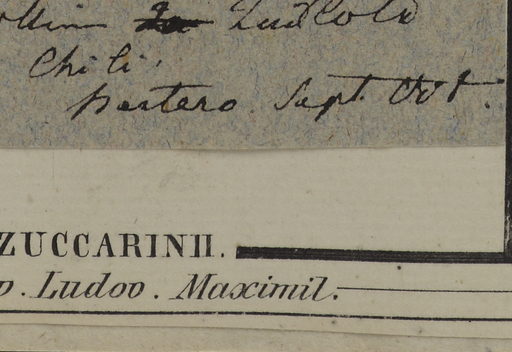 Chili.
Bertero. Sept. Oct.
ZUCCARINII.
p. Ludov. Maximil.